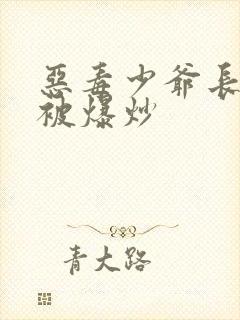 惡毒少爺長
被爆炒
青大路